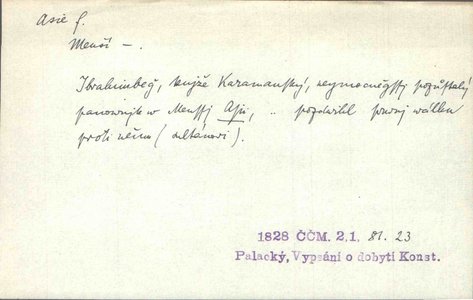 Asie f.
Menší –.
Ibrahimbeg, kníže Karamanský, neymocněgssj pozůstalý
panownjk w Menssj Asii, .. pozdwihl prwnj wálku
proti němu (sultánovi).
1828 ČČM. 2,1. 81. 23
Palacký, Vypsání o dobytí Konst.